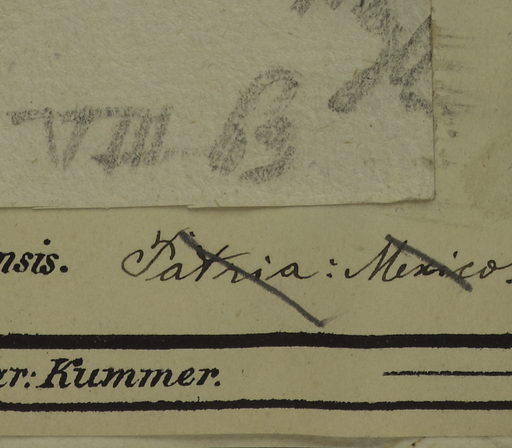 VIII B
nsis. Patria: Mexico.
ar: Kummer.